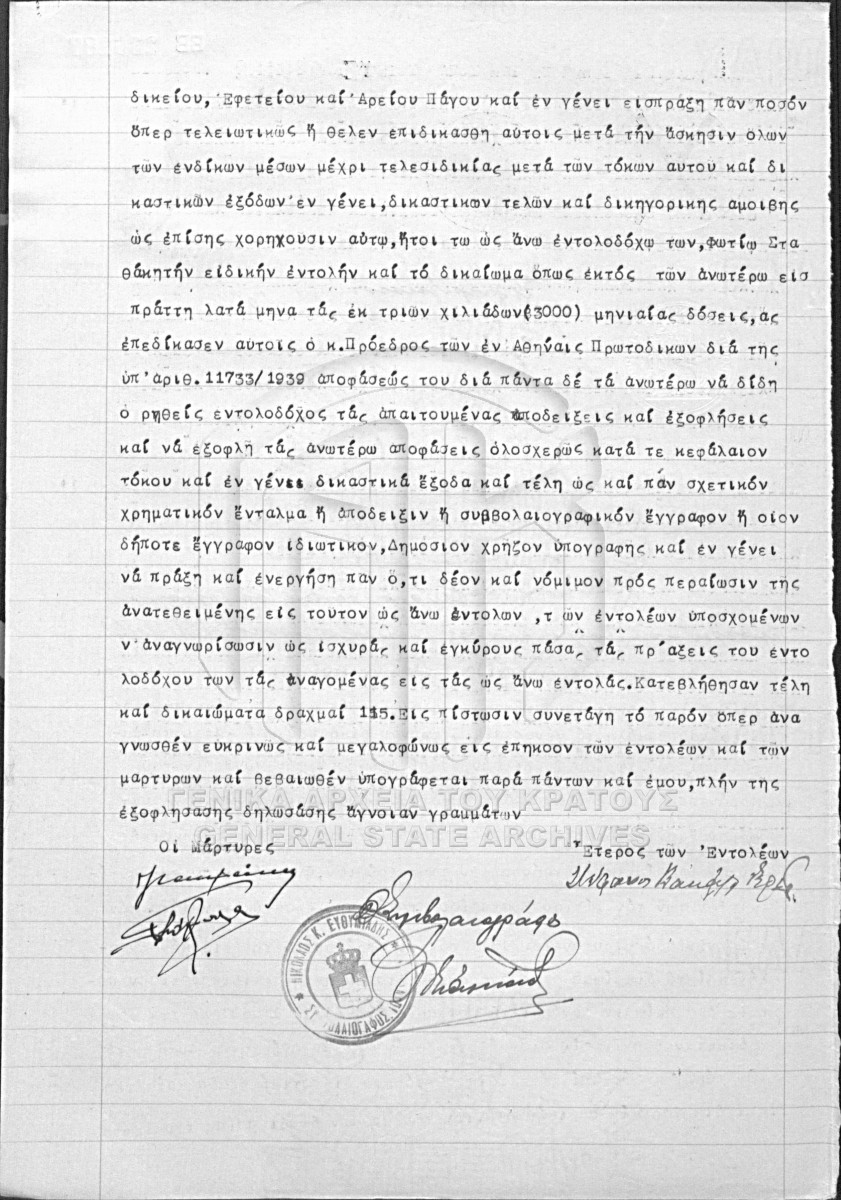 δικείου, Ἐφετείου καί Ἀρείου Πάγου καί ἐν γένει εἰσπράξη πᾶν ποσόν
ὅπερ τελειωτικῶς ἤ θελεν ἐπιδικασθῆ αὐτοῖς μετά τήν ἄσκησιν ὅλων
τῶν ἐνδίκων μέσων μέχρι τελεσιδικίας μετά τῶν τόκων αὐτοῦ καί δι
καστικῶν ἐξόδων ἐν γένει,δικαστικῶν τελῶν καί δικηγορικῆς ἀμοιβῆς
ὡς ἐπίσης χορηγοῦσιν αὐτῷ,ἤτοι τῷ ὡς ἄνω ἐντολοδόχῳ των,Φωτίῳ Στα
θάκητήν εἰδικήν ἐντολήν καί τό δικαίωμα ὅπως ἐκτός τῶν ἀνωτέρω εἰσ
πράττη λατά μῆνα τάς ἐκ τριῶν χιλιάδων(3000) μηνιαίας δόσεις,ἅς
ἐπεδίκασεν αὐτοῖς ὁ κ.Πρόεδρος τῶν ἐν Ἀθήναις Πρωτοδικῶν διά τῆς
ὑπ'ἀριθ.11733/1939 ἀποφάσεώς του διά πάντα δέ τά ἀνωτέρω νά δίδη
ὁ ρηθείς ἐντολοδόχος τάς ἀπαιτουμένας ἀποδείξεις καί ἐξοφλήσεις
καί νά ἐξοφλῆ τάς ἀνωτέρω ἀποφάσεις ὁλοσχερῶς κατά τε κεφάλαιον
τόκου καί ἐν γένει δικαστικά ἔξοδα καί τέλη ὡς καί πᾶν σχετικόν
χρηματικόν ἔνταλμα ἤ ἀπόδειξιν ἤ συμβολαιογραφικόν ἔγγραφον ἤ οἷον
δήποτε ἔγγραφον ἰδιωτικόν,Δημόσιον χρῆζον ὑπογραφῆς καί ἐν γένει
νά πράξη καί ἐνεργήση πᾶν ὅ,τι δέον καί νόμιμον πρός περαίωσιν τῆς
ἀνατεθειμένης εἰς τοῦτον ὡς ἄνω ἐντολῶν ,τ ῶν ἐντολέων ὑποσχομένων
ν'ἀναγνωρίσωσιν ὡς ἰσχυράς καί ἐγκύρους πάσας τάς πράξεις του ἐντο
λοδόχου των τάς ἀναγομένας εἰς τάς ὡς ἄνω ἐντολάς.Κατεβλήθησαν τέλη
καί δικαιώματα δραχμαί 115.Εἰς πίστωσιν συνετάγη τό παρόν ὅπερ ἀνα
γνωσθέν εὐκρινῶς καί μεγαλοφώνως εἰς ἐπήκοον τῶν ἐντολέων καί τῶν
μαρτύρων καί βεβαιωθέν ὑπογράφεται παρά πάντων καί ἐμοῦ,πλήν τῆς
ἐξοφλησάσης δηλωσάσης ἄγνοιαν γραμμάτων
ΓΕΝΙΚΑ ΑΡΧΕΙΑ ΤΟΥ ΚΡΑΤΟΥΣ
GENERAL STATE ARCHIVES
Οἱ Μάρτυρες
Ἕτερος τῶν Ἐντολέων
Ὁ Συμβολαιογράφος
ΝΙΚΟΛΑΟΣ Κ. ΕΥΘΥΜΙΑΔΗΣ